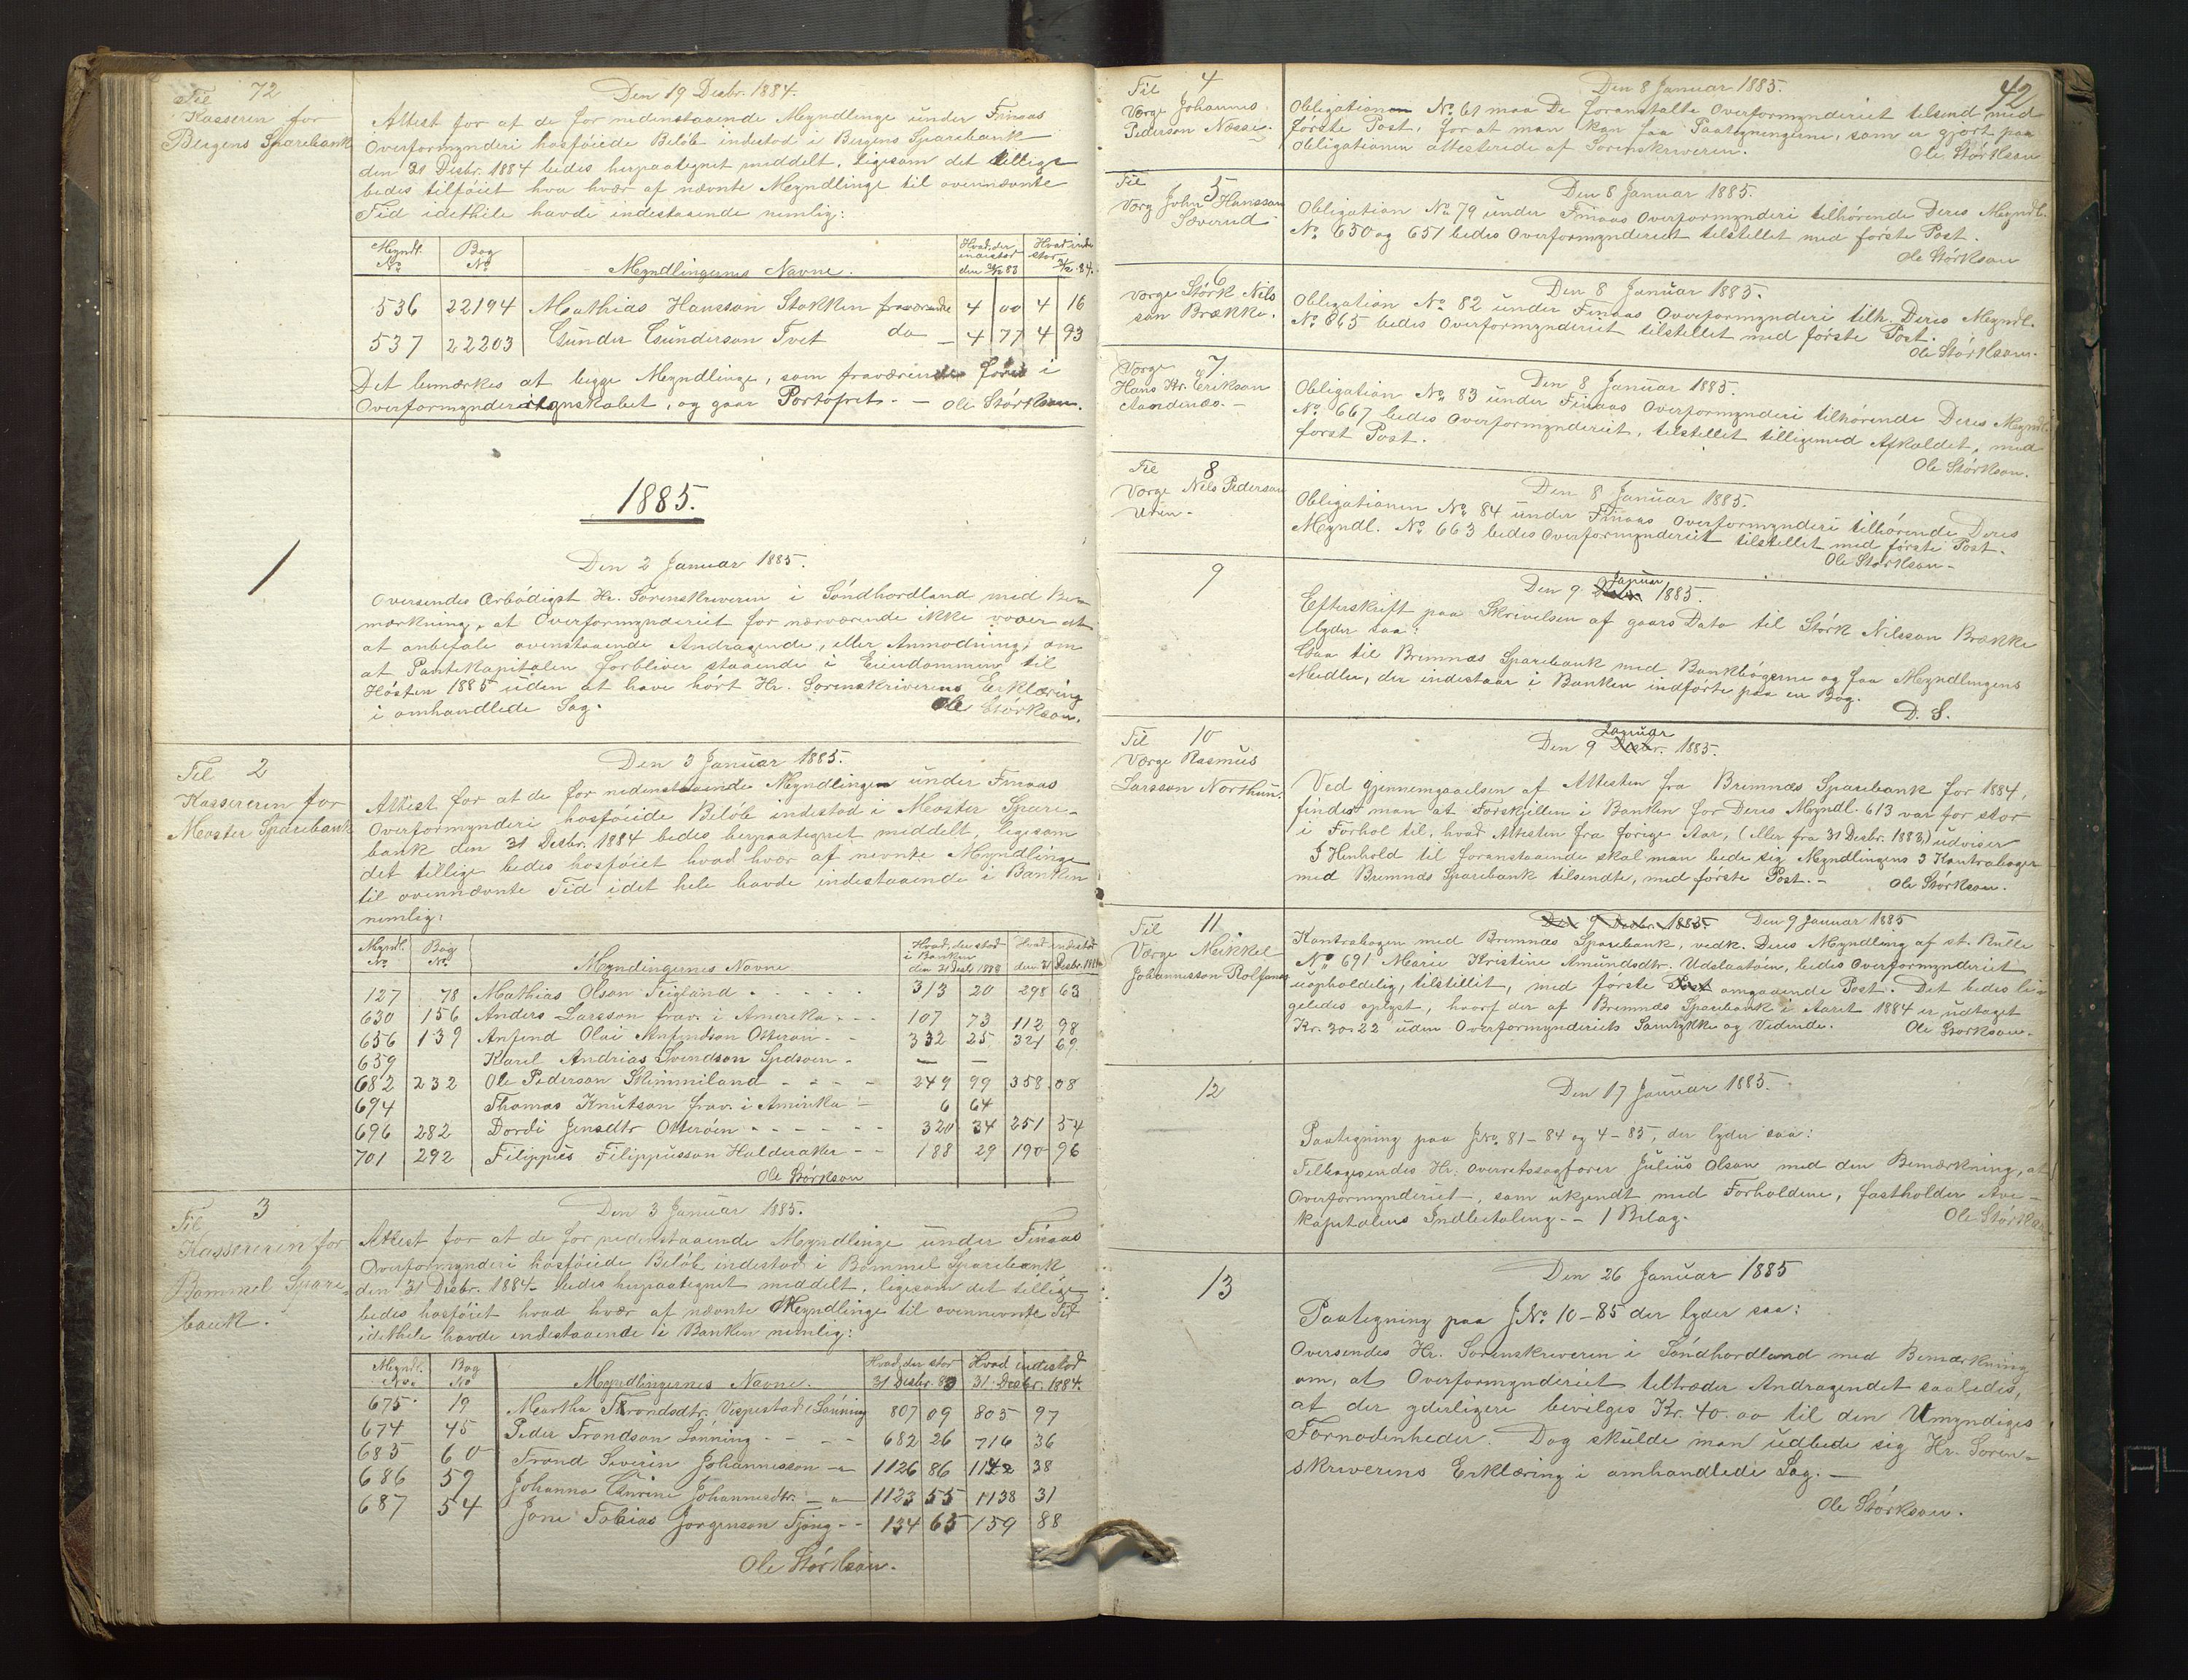 Til 72
Kasseren for
Bergens Sparebank
Den 19 Decbr. 1884.
Attest for at de for nedenstaaende Myndlinge under Finaas
Overformynderi hosføiede Beløb indestod i Bergens Sparebank
den 31 Decbr. 1884 bedes herpaategnet middelt, ligesom det tillige
bedes tilføiet hva hvær af nævnte Myndlinge til ovennævnte
Tid idethele havde indestaaende nemlig:
Myndl. No Bog No Myndlingernes Navne. Hvad der indestod den 31/12 83 Hvad indestod 31/12 84.
536 22194 Mathias Hansson Stokken fraværende 4 00 4 16
537 22203 Gunder Gunderson Tvet do 4 77 4 93
Det bemærkes at begge Myndlinge, som fraværende føres i
Overformynderiregnskabet, og gaar Portofrit. - Ole Størkson.
1885.
1
Den 2 Januar 1885.
Oversendes Ærbødigst Hr. Sorenskriveren i Søndhordland med Be-
mærkning, at Overformynderiet for nærværende ikke vover at
at anbefale ovenstaaende Andragende, eller Anmodning, om
at Pantekapitalen forbliver staaende i Eiendommen til
Høsten 1885 uden at have hørt Hr. Sorenskriverens Erklæring
i omhandlede Sag. Ole Størkson.
Til 2
Kassereren for
Moster Sparebank
Den 3 Januar 1885.
Attest for at de for nedenstaaende Myndlinge under Finaas
Overformynderi hosføiede Beløb indestod i Moster Spare-
bank den 31 Decbr. 1884 bedes herpaategnet middelt, ligesom
det tillige bedes hosføiet hvad hvær af nevnte Myndlinge
til ovennævnte Tid idet hele havde indestaaende i Banken
nemlig:
Myndl. No Bog No. Myndingernes Navne Hvad der stod i Banken den 31 Decbr 1883 Hvad indestod den 31 Decbr. 1884
127 78 Mathias Olson Teigland 313 20 298 63
630 156 Anders Larsson frav. i Amerika 107 73 112 98
656 139 Anfind Olai Anfindson Otterøen 332 25 321 69
659 Karil Andrias Svendson Sydsven - - -
682 232 Ole Pederson Skimmiland 249 99 358 08
694 Thomas Knutson frav. i Amerika - 6 64
696 282 Dordi Jensdtr Otterøen 320 34 251 54
701 292 Filippus Filippusson Halderaker 188 29 190 96
Ole Størkson
Til 3
Kassereren for
Bømmel Spare-
bank.
Den 3 Januar 1885.
Attest for at de for nedenstaaende Myndlinge under Finaas
Overformynderi hosføiede Beløb indestod i Bømmel Sparebank
den 31 Decbr. 1884 bedes herpaategnet middelt, ligesom det tillige
bedes hosføiet hvad hvær af nævnte Myndlinge til ovennevnte Tid
idethele havde indestaaende i Banken nemlig:
Myndl. No. Bog No Myndlingernes Navne. Hvad der stod 31 Decbr. 83 Hvad indestod 31 Decbr. 1884.
675 19 Martha Trondsdtr. Vespestad Lønning 807 09 805 97
674 45 Peder Trondson Lønning 682 26 716 36
685 60 Trond Severin Johannesson 1126 86 1142 38
686 59 Johanna Cunrine Johannesdtr. 1123 55 1138 31
687 54 Jone Tobias Jørgenson Tjong 134 65 159 88
Ole Størkson.
42
Til 4
Værge Johannes
Pederson Næsse.
Den 8 Januar 1885.
Obligationen No. 61 maa De foranstalte Overformynderiet tilsend med
første Post, for at man kan faa Paategningerne, som er gjort paa
Obligationen attesterede af Sorenskriveren. Ole Størkson
Til 5
Værg John Hansson
Sæverud
Den 8 Januar 1885.
Obligation No. 79 under Finaas Overformynderi tilhørende Deres Myndl.
No. 650 og 651 bedes Overformynderiet tilstillet med første Post.
Ole Størkson
6
Værge Størk Nils
son Brække.
Den 8 Januar 1885.
Obligation No. 82 under Finaas Overformynderi tilh. Deres Myndl.
No. 665 bedes Overformynderiet tilstillet med første Post.
Ole Størkson.
Værge 7.
Hans Hr. Erikson
Aandenæs.-
Den 8 Januar 1885.
Obligation No. 83 under Finaas Overformynderi tilhørende Deres Myndl.
No. 667 bedes Overformynderiet, tilstillet tilligemed Afkaldet, med
først Post.
Ole Størkson.
Til 8
Værge Nils Pederson
Uren-
Den 8 Januar 1885.
Obligationen No. 84 under Finaas Overformynderi tilhørende Deres
Myndl. No. 663 bedes Overformynderiet tilstillet med første Post.
Ole Størkson-
9
Den 9 Decbr. Januar 1885.
Efterskrift paa Skrivelsen af gaars Dato til Størk Nilsson Brække
lyder saa:
Gaa til Bremnæs Sparebank med Bankbøgerne og faa Myndlingens
Midler, der indestaar i Banken indførte paa en Bog.
D. S.
Til 10
Værge Rasmus
Larsson Northun.
Den 9 Decbr. Januar 1885.
Ved Gjennemgaaelsen af Attesten fra Bremnæs Sparebank for 1884,
findes man at Forskjellen i Banken for Deres Myndl. 613 var for stor
i Forhol til, hvad Attesten fra forige Aar, (eller fra 31 Decbr. 1883,) udviser
I Henhold til foranstaaende skal man bede sig Myndlingens 3 Kontrabøger
med Bremnæs Sparebank tilsendte, med første Post.- Ole Størkson.
Til 11
Værge Meikkel
Johannesson Rolfsnes
Den 9 Decbr. 1885. Den 9 Januar 1885
Kontrabogen med Bremnæs Sparebank, vedk. Deres Myndling af st. Rulle
No. 691 Marie Kristine Amundsdtr. Udslaatøen, bedes Overformynderiet
uopholdelig, tilstillet, med første Post omgaaende Post. Det bedes li-
geledes oplyst, hvorf der af Bremnæs Sparebank i Aaret 1884 er udtaget
Kr. 30.22 uden Overformynderiets Samtykke og Vidende. Ole Størkson.
12
Den 17 Januar 1885.
Paategning paa JNo. 81-84 og 4-85, der lyder saa:
Tilbagesendes Hr. Overretssagfører Julius Olson med den Bemærkning, at
Overformynderiet, som ukjendt med Forholdene, fastholder Ave-
kapitalens Indbetaling.- 1 Bilag. Ole Størkson
13
Den 26 Januar 1885
Paategning paa JNo. 10-85 der lyder saa:
Oversendes Hr. Sorenskriveren i Søndhordland med Bemærkning
om, at Overformynderiet tiltræder Andragendet saaledes,
at der yderligere bevilges Kr. 40.00 til den Umyndiges
Fornødenheder. Dog skulde man udbede sig Hr. Soren-
skriverens Erklæring i omhandlede Sag.-
Ole Størkson.